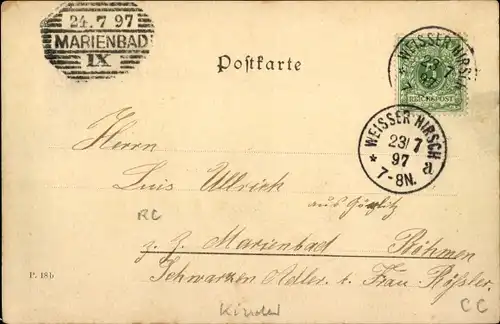 24.7 97
MARIENBAD
IX
Postkarte
WEISSER HIRSCH
23 7
97
REICHSPOST
WEISSER HIRSCH
23/7
97
* 7-8N. a
Herrn
Luis Ullrich
aus Görlitz
RC
z. Z. Marienbad Böhmen
P. 18b
Schwarzen Adler. b. Frau Rößler.
Kinder
CC